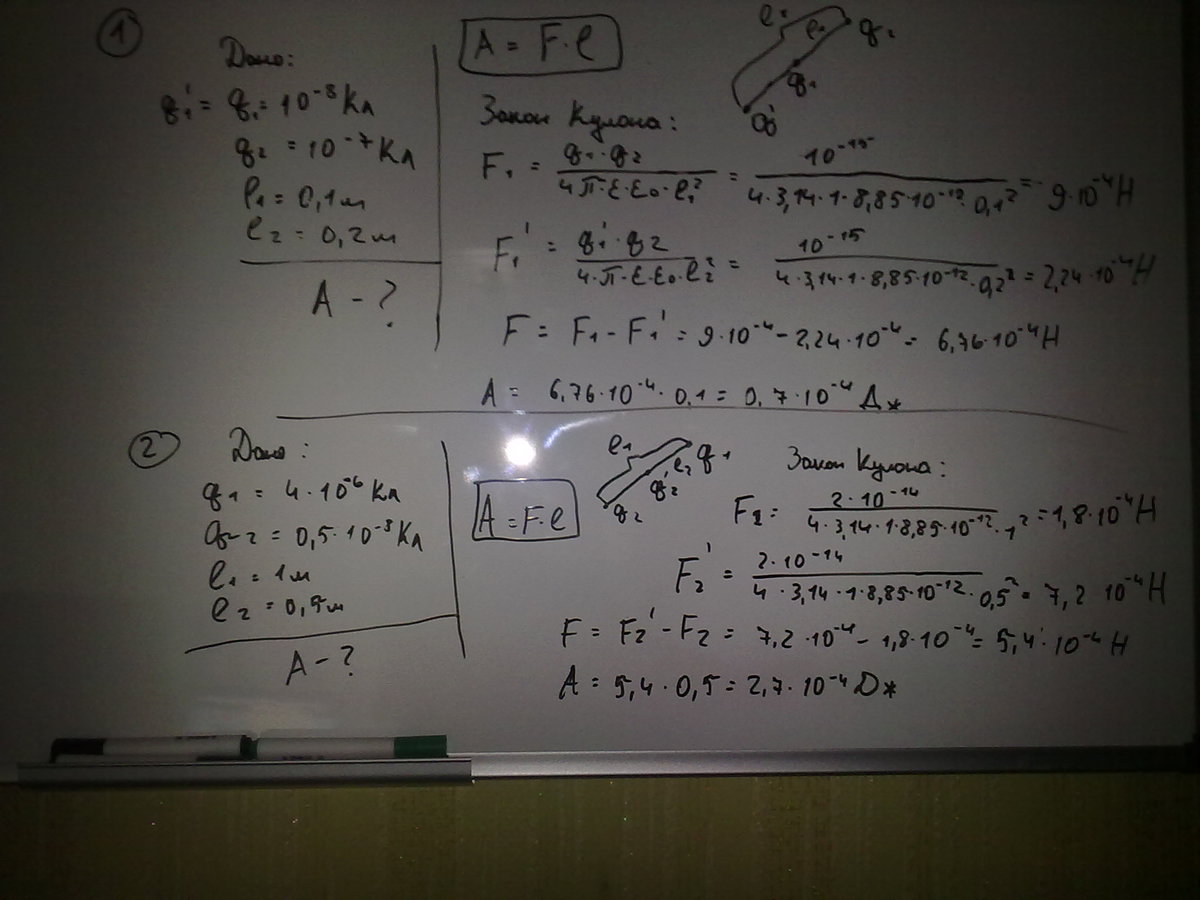 1
Дано:
q₁' = q₁ = 10⁻⁸ Кл
q₂ = 10⁻⁷ Кл
l₁ = 0,1 м
l₂ = 0,2 м
A - ?
A = F·l
l₂ l₁ q₂
q₁
q₁'
Закон Кулона:
F₁ = q₁·q₂ / 4π·ε·ε₀·l₁² = 10⁻¹⁵ / 4·3,14·1·8,85·10⁻¹²·0,1² = 9·10⁻⁴ Н
F₁' = q₁'·q₂ / 4·π·ε·ε₀·l₂² = 10⁻¹⁵ / 4·3,14·1·8,85·10⁻¹²·0,2² = 2,24·10⁻⁴ Н
F = F₁ - F₁' = 9·10⁻⁴ - 2,24·10⁻⁴ = 6,76·10⁻⁴ Н
A = 6,76·10⁻⁴·0,1 = 0,7·10⁻⁴ Дж
2
Дано:
q₁ = 4·10⁻⁶ Кл
q₂ = 0,5·10⁻⁸ Кл
l₁ = 1 м
l₂ = 0,5 м
A - ?
A = F·l
l₁ l₂ q₁
q₂'
q₂
Закон Кулона:
F₂ = 2·10⁻¹⁴ / 4·3,14·1·8,85·10⁻¹²·1² = 1,8·10⁻⁴ Н
F₂' = 2·10⁻¹⁴ / 4·3,14·1·8,85·10⁻¹²·0,5² = 7,2 10⁻⁴ Н
F = F₂' - F₂ = 7,2·10⁻⁴ - 1,8·10⁻⁴ = 5,4·10⁻⁴ Н
A = 5,4·0,5 = 2,7·10⁻⁴ Дж